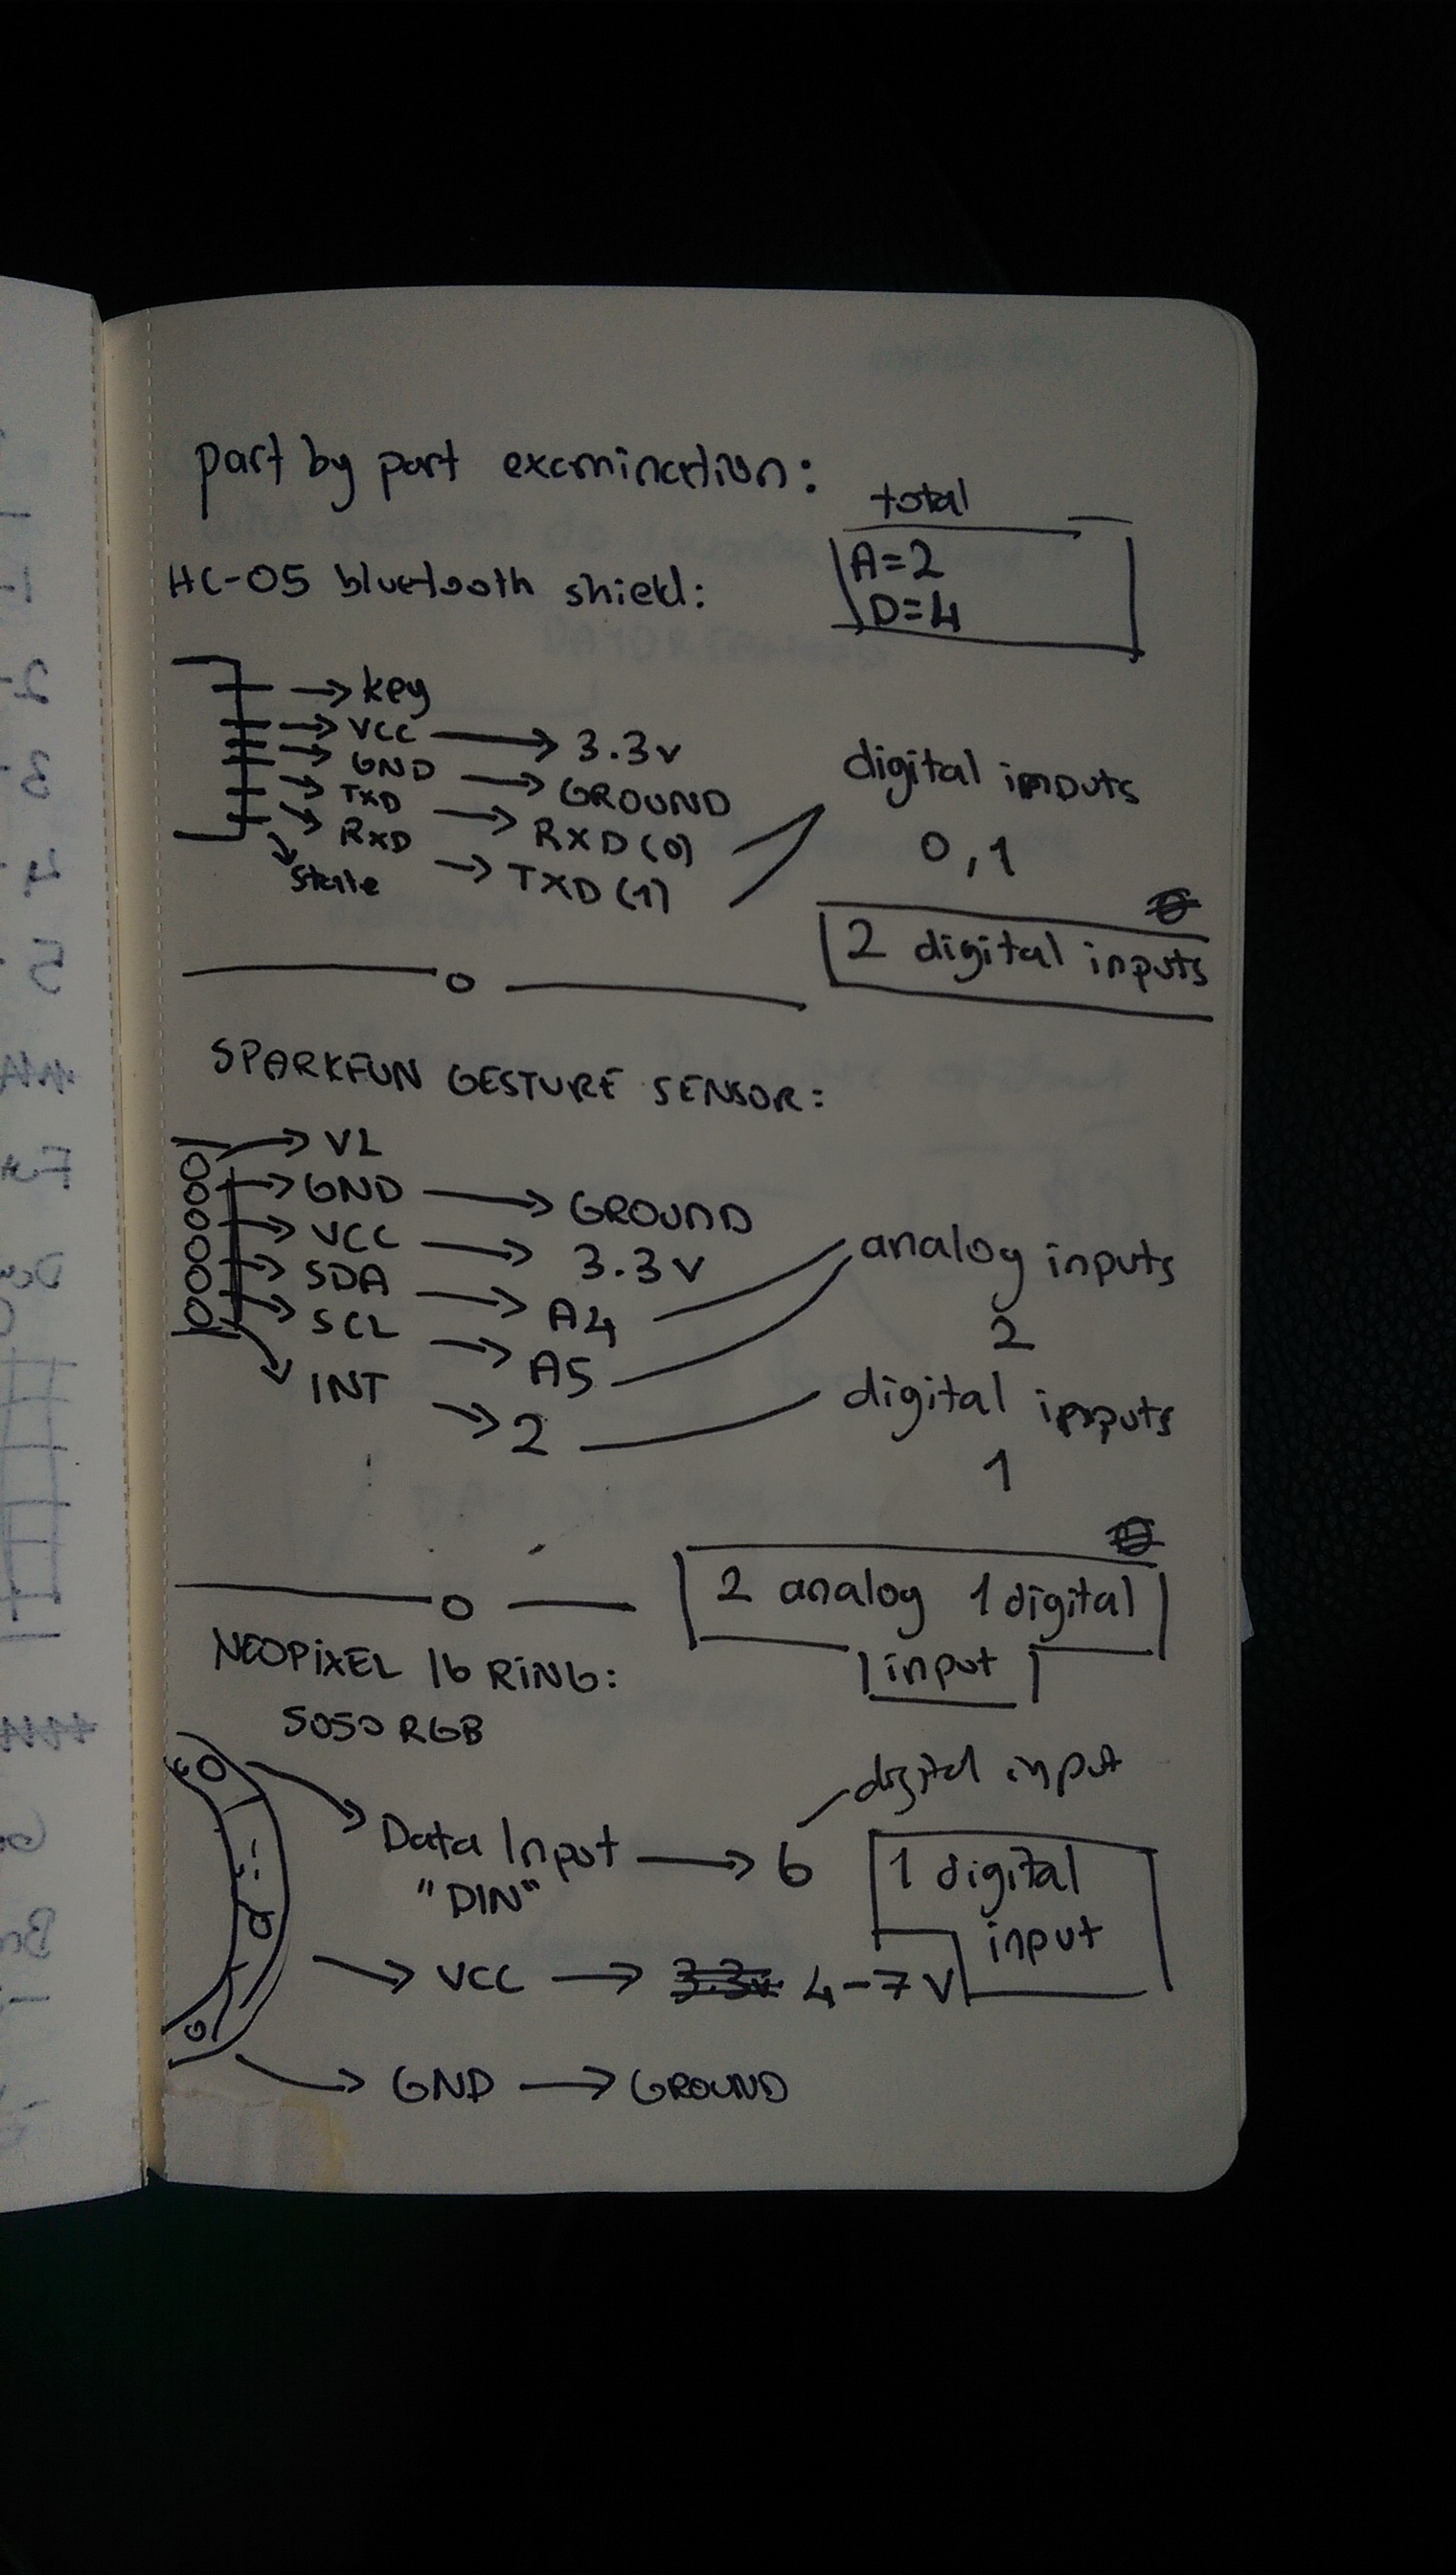 part by part examination:
total
A=2
D=4
HC-05 bluetooth shield:
→ key
→ VCC → 3.3v
→ GND → GROUND
→ TXD → RXD (0)
→ RXD → TXD (1)
State
digital inputs
0,1
2 digital inputs
SPARKFUN GESTURE SENSOR:
→ VL
→ GND → GROUND
→ VCC → 3.3V
→ SDA → A4
→ SCL → A5
INT → 2
analog inputs
2
digital inputs
1
2 analog 1 digital
input
NEOPiXEL 16 RiNG:
5050 RGB
digital input
Data Input → 6
"DIN"
1 digital
input
→ VCC → 3.3v 4-7V
→ GND → GROUND
2
3
4
5